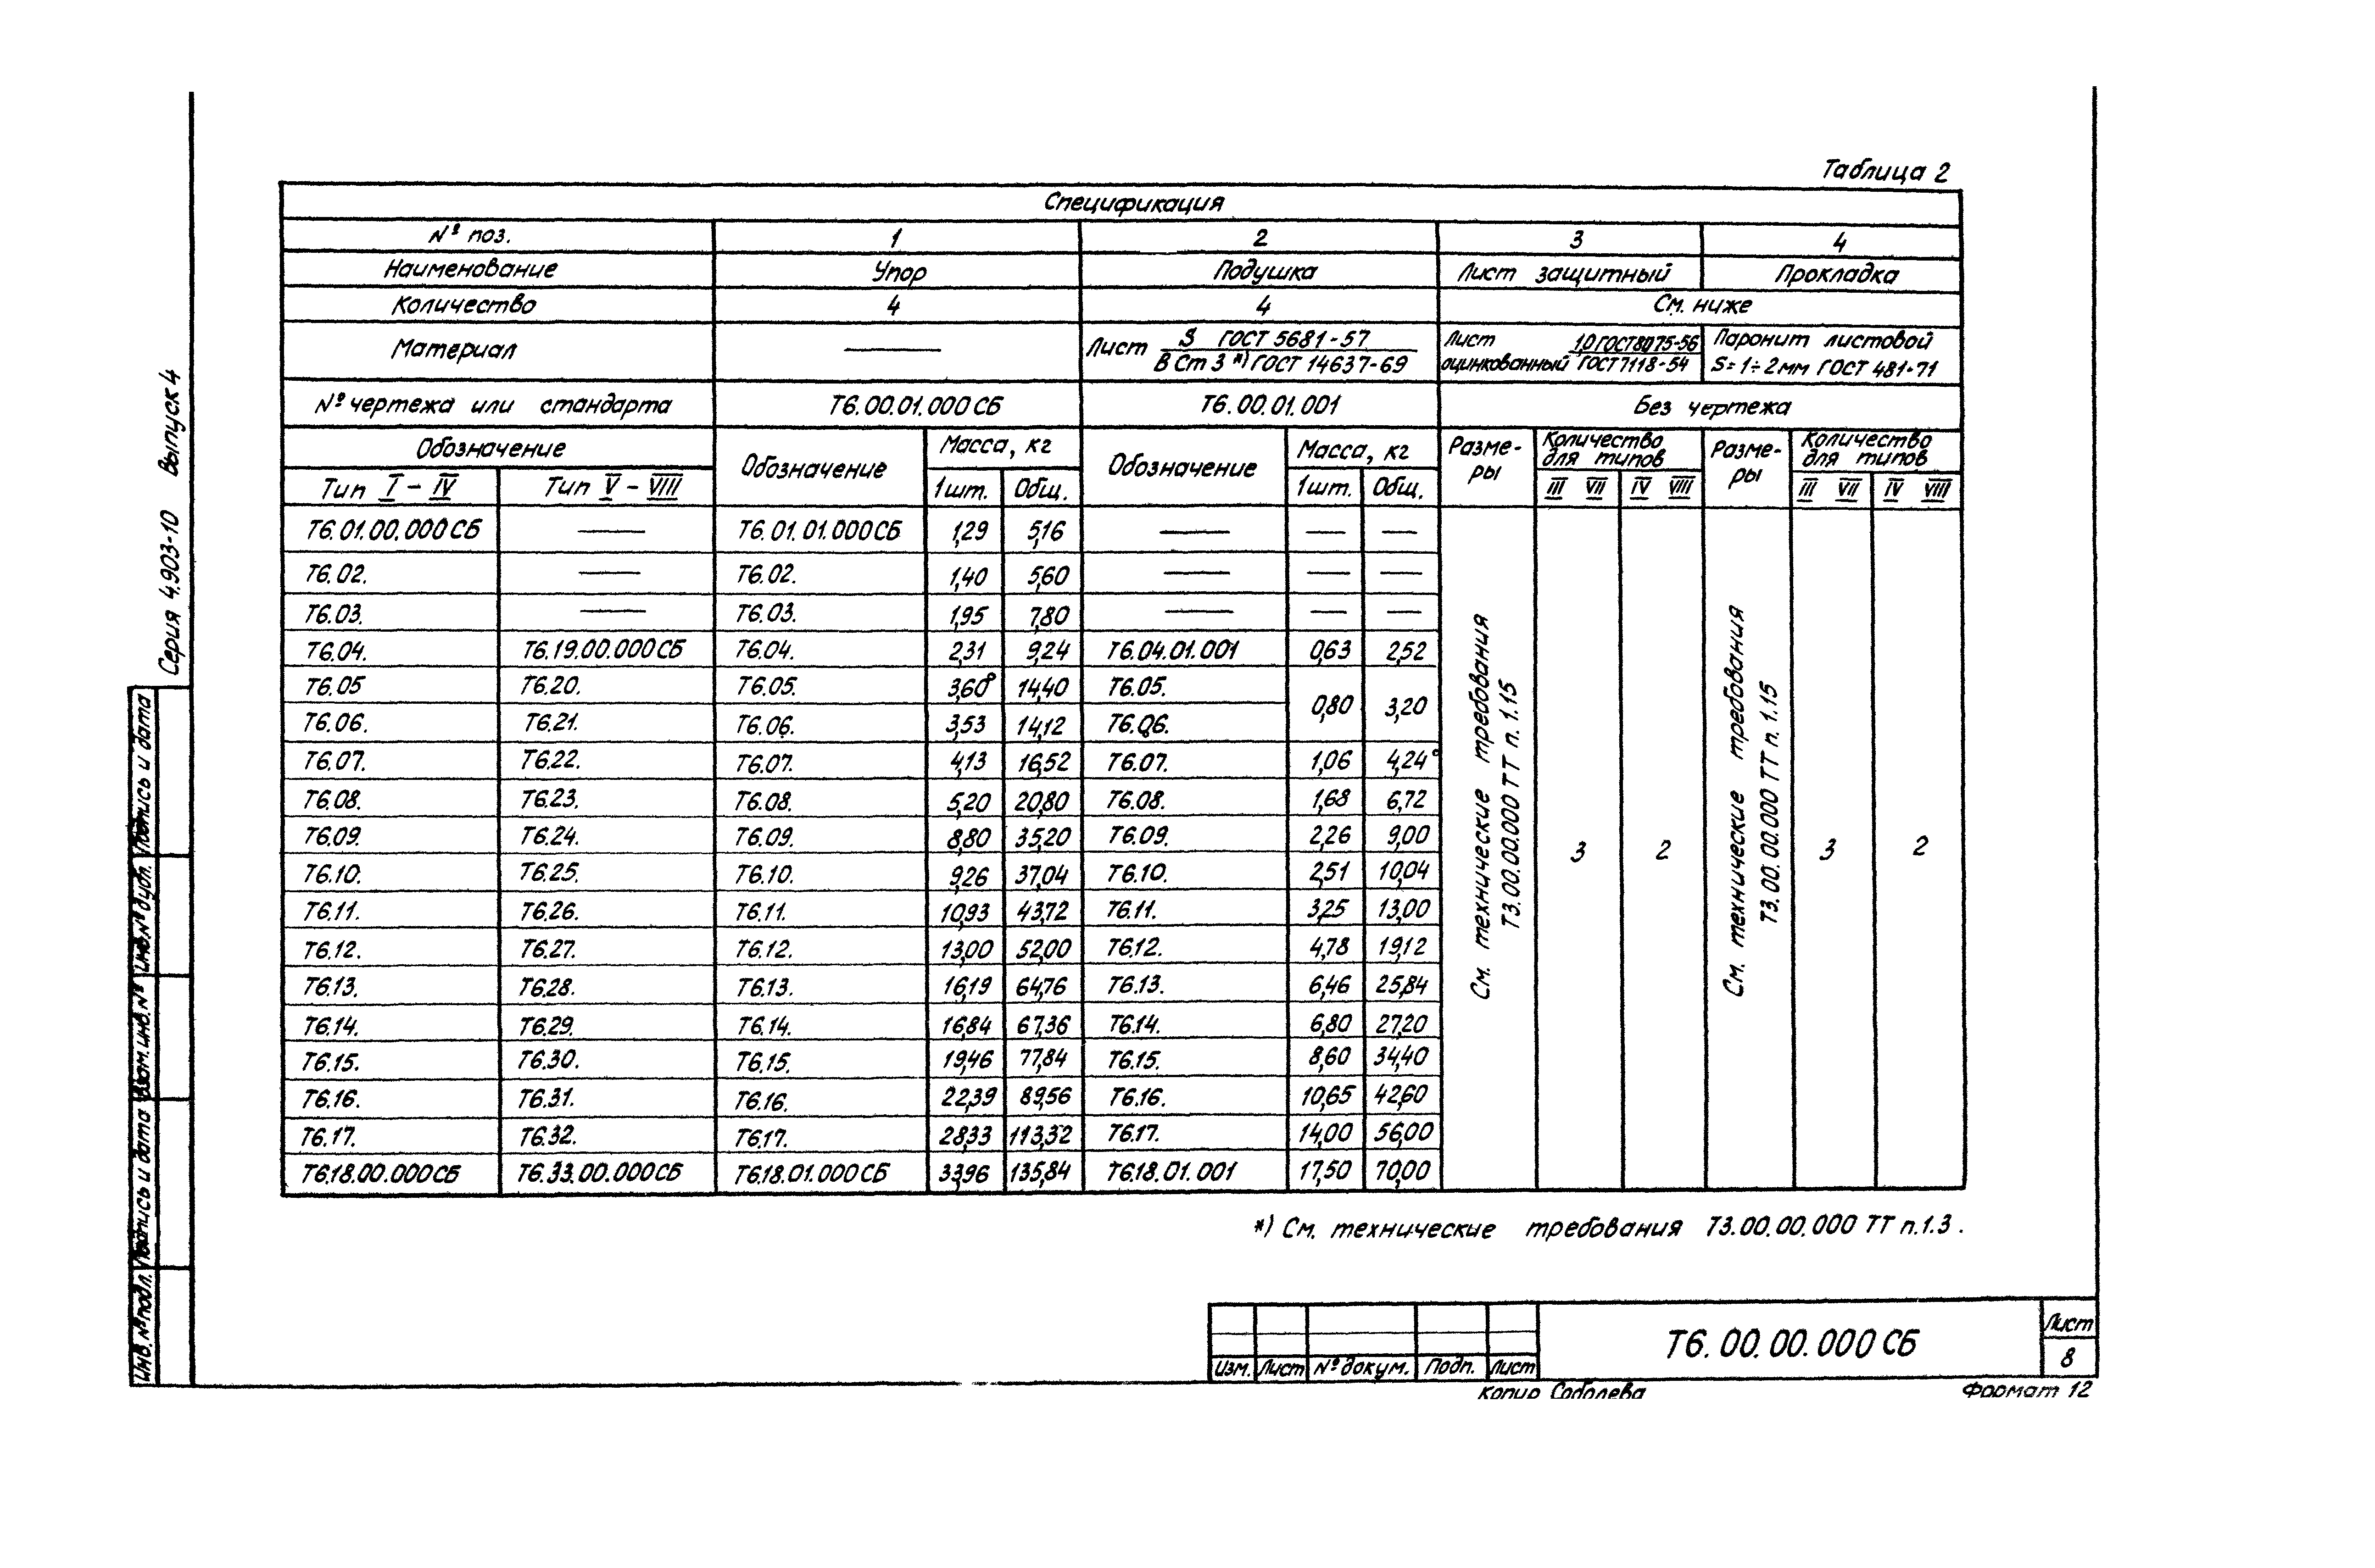 Таблица 2
Спецификация
№ поз. 1 2 3 4
Наименование Упор Подушка Лист защитный Прокладка
Количество 4 4 См. ниже
Материал —— Лист S ГОСТ 5681-57 / В Ст 3 *) ГОСТ 14637-69 Лист оцинкованный 1,0 ГОСТ 8075-56 / ГОСТ 7118-54 Паронит листовой S=1÷2мм ГОСТ 481-71
№ чертежа или стандарта Т6.00.01.000 СБ Т6.00.01.001 Без чертежа
Обозначение Обозначение Масса, кг Обозначение Масса, кг Разме-ры Количество для типов Разме-ры Количество для типов
Тип I – IV Тип V – VIII 1шт. Общ. 1шт. Общ. III VII IV VIII III VII IV VIII
Т6.01.00.000 СБ —— Т6.01.01.000 СБ 1,29 5,16 —— — —
Т6.02. —— Т6.02. 1,40 5,60 —— — —
Т6.03. —— Т6.03. 1,95 7,80 —— — —
Т6.04. Т6.19.00.000 СБ Т6.04. 2,31 9,24 Т6.04.01.001 0,63 2,52
Т6.05 Т6.20. Т6.05. 3,60 14,40 Т6.05. 0,80 3,20
Т6.06. Т6.21. Т6.06. 3,53 14,12 Т6.06.
Т6.07. Т6.22. Т6.07. 4,13 16,52 Т6.07. 1,06 4,24
Т6.08. Т6.23. Т6.08. 5,20 20,80 Т6.08. 1,68 6,72
Т6.09. Т6.24. Т6.09. 8,80 35,20 Т6.09. 2,26 9,00
Т6.10. Т6.25. Т6.10. 9,26 37,04 Т6.10. 2,51 10,04
Т6.11. Т6.26. Т6.11. 10,93 43,72 Т6.11. 3,25 13,00
Т6.12. Т6.27. Т6.12. 13,00 52,00 Т6.12. 4,78 19,12
Т6.13. Т6.28. Т6.13. 16,19 64,76 Т6.13. 6,46 25,84
Т6.14. Т6.29. Т6.14. 16,84 67,36 Т6.14. 6,80 27,20
Т6.15. Т6.30. Т6.15. 19,46 77,84 Т6.15. 8,60 34,40
Т6.16. Т6.31. Т6.16. 22,39 89,56 Т6.16. 10,65 42,60
Т6.17. Т6.32. Т6.17. 28,33 113,32 Т6.17. 14,00 56,00
Т6.18.00.000 СБ Т6.33.00.000 СБ Т6.18.01.000 СБ 33,96 135,84 Т6.18.01.001 17,50 70,00
См. технические требования
Т3.00.00.000 ТТ п. 1.15
3 2
См. технические требования
Т3.00.00.000 ТТ п. 1.15
3 2
*) См. технические требования Т3.00.00.000 ТТ п.1.3.
Изм. Лист № докум. Подп. Лист
Т6.00.00.000 СБ
Лист
8
копир Соболева
Формат 12
Серия 4.903-10 Выпуск 4
Инв.№ подл. Подпись и дата Взам.инв.№ Инв.№ дубл. Подпись и дата